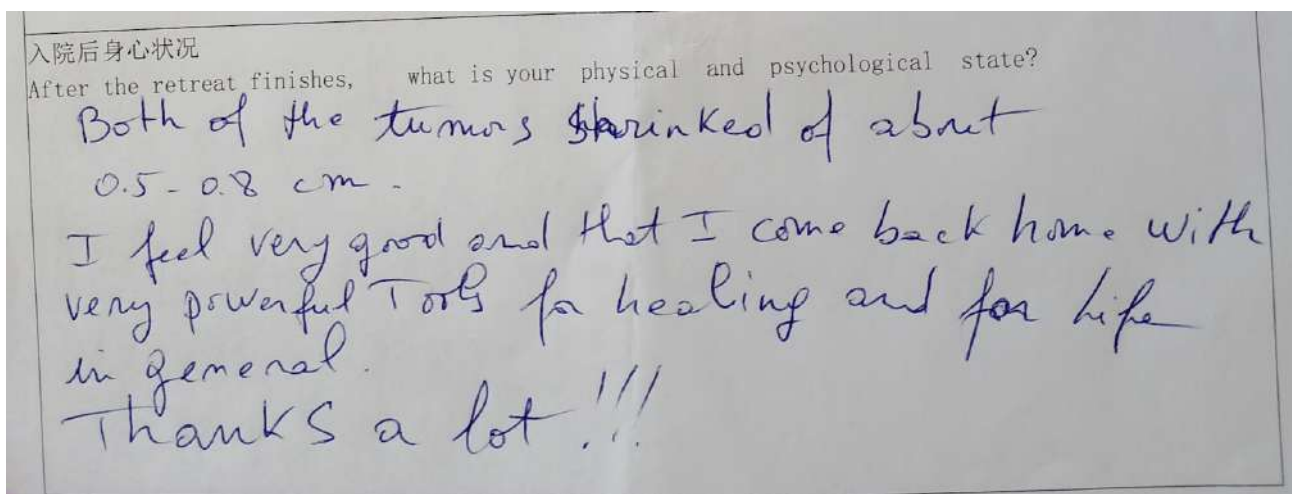 入院后身心状况
After the retreat finishes, what is your physical and psychological state?
Both of the tumors shrinked of about
0.5 - 0.8 cm.
I feel very good and that I come back home with
very powerful Tools for healing and for life
in general.
Thanks a lot!!!